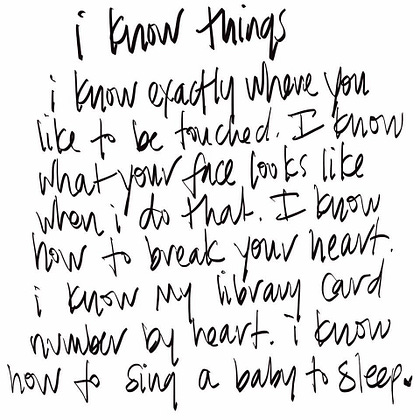 i know things
i know exactly where you
like to be touched. I know
what your face looks like
when i do that. I know
how to break your heart.
i know my library card
number by heart. i know
how to sing a baby to sleep.